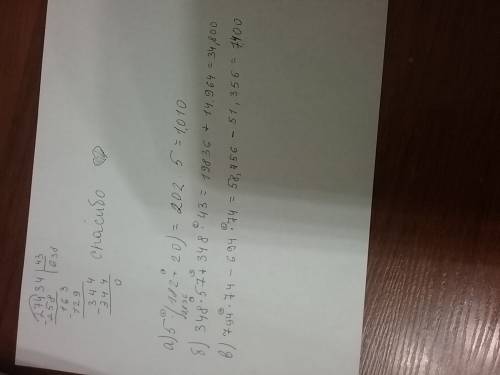 27434 | 43
-258 | 638
163
-129
344
-344
0
спасибо
а) 5 · (182 + 20) = 202 5 = 1,010
б) 348 · 57 + 348 · 43 = 19836 + 14.964 = 34,800
в) 794 · 74 - 694 · 74 = 58,756 - 51,356 = 7400